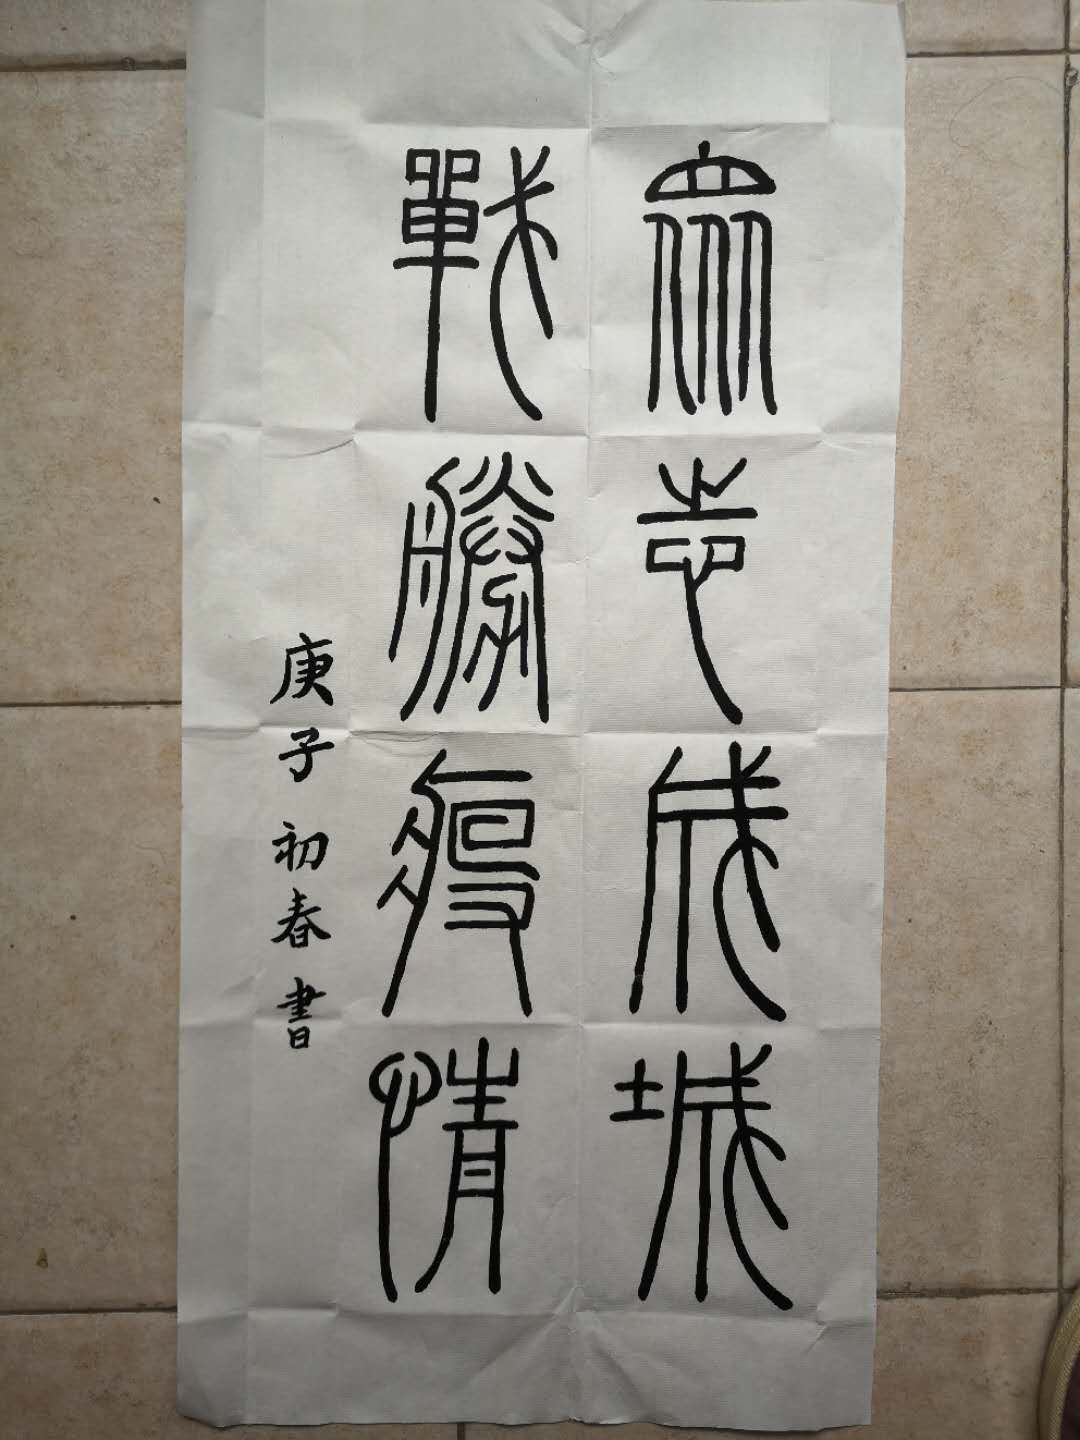 眾志成城
戰勝疫情
庚子初春書